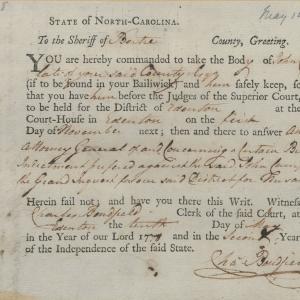 May 18
STATE of NORTH-CAROLINA.
To the Sheriff of Bertie County, Greeting.
YOU are hereby commanded to take the Body of John
late of your said County
(if to be found in your Bailiwick) and him safely keep, so
that you have him before the Judges of the Superior Court,
to be held for the District of Edenton at the
Court-House in Edenton on the first
Day of November next; then and there to answer
Attorney General of and Concerning a Certain
Indictment prefered against the said John
the Grand Jurors for our said District for
Herein fail not; and have you there this Writ. Witness
Charles Bondfield Clerk of the said Court, at
Edenton the tenth Day of May
in the Year of our Lord 177 and in the Second Year
of the Independence of the said State.
Cha Bondfield